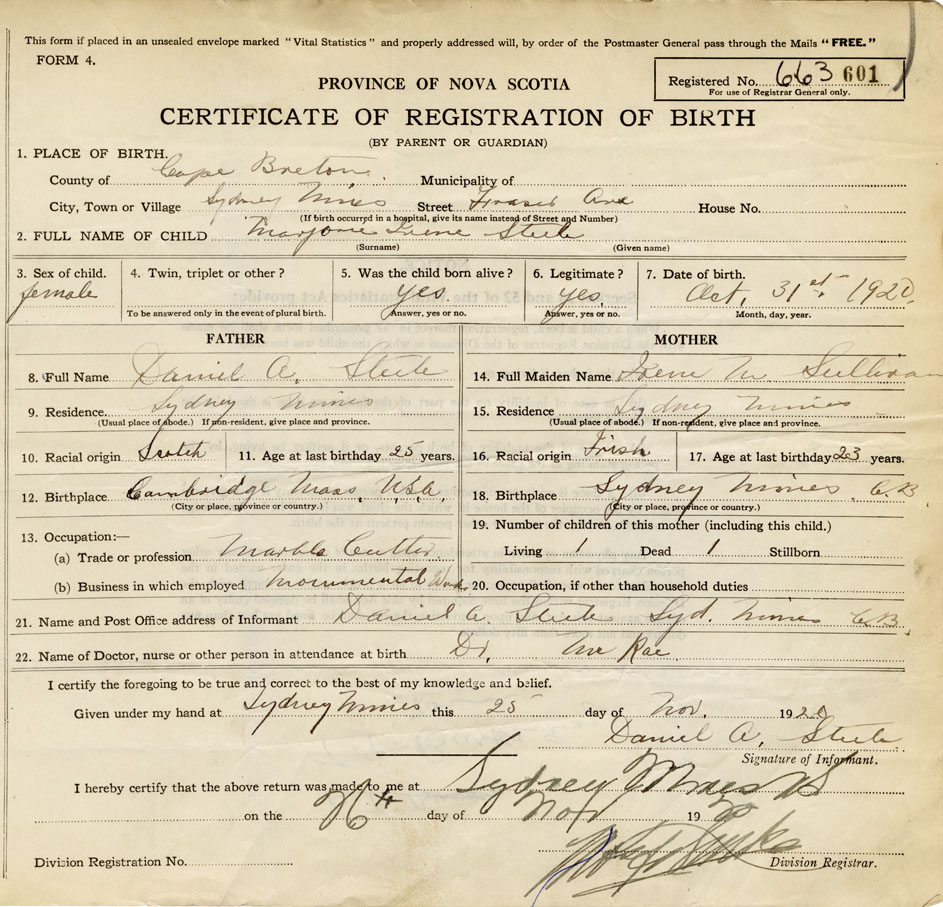 This form if placed in an unsealed envelope marked "Vital Statistics" and properly addressed will, by order of the Postmaster General pass through the Mails "FREE."
FORM 4.
Registered No. 663 601
For use of Registrar General only.
PROVINCE OF NOVA SCOTIA
CERTIFICATE OF REGISTRATION OF BIRTH
(BY PARENT OR GUARDIAN)
1. PLACE OF BIRTH.
County of Cape Breton Municipality of
City, Town or Village Sydney Mines Street Fraser Ave House No.
(If birth occurred in a hospital, give its name instead of Street and Number)
2. FULL NAME OF CHILD Marjorie Irene Steele
(Surname) (Given name)
3. Sex of child. 4. Twin, triplet or other? 5. Was the child born alive? 6. Legitimate? 7. Date of birth.
female yes. yes. Oct, 31st, 1920.
To be answered only in the event of plural birth. Answer, yes or no. Answer, yes or no. Month, day, year.
FATHER MOTHER
8. Full Name Daniel A. Steele 14. Full Maiden Name Irene M Sullivan
9. Residence. Sydney Mines 15. Residence Sydney Mines
(Usual place of abode.) If non-resident, give place and province. (Usual place of abode.) If non-resident, give place and province.
10. Racial origin Scotch 11. Age at last birthday 25 years. 16. Racial origin Irish 17. Age at last birthday 23 years.
12. Birthplace Cambridge Mass, U.S.A, 18. Birthplace Sydney Mines. C.B
(City or place, province or country.) (City or place, province or country.)
13. Occupation:— 19. Number of children of this mother (including this child.)
(a) Trade or profession. Marble Cutter Living 1 Dead 1 Stillborn
(b) Business in which employed Monumental Works 20. Occupation, if other than household duties
21. Name and Post Office address of Informant Daniel A. Steele Syd. Mines C.B.
22. Name of Doctor, nurse or other person in attendance at birth Dr. McRae
I certify the foregoing to be true and correct to the best of my knowledge and belief.
Given under my hand at Sydney Mines this 25 day of Nov. 1920
Daniel A. Steele
Signature of Informant.
I hereby certify that the above return was made to me at Sydney Mines NS
on the 26th day of Nov 1920
Division Registration No. Division Registrar.